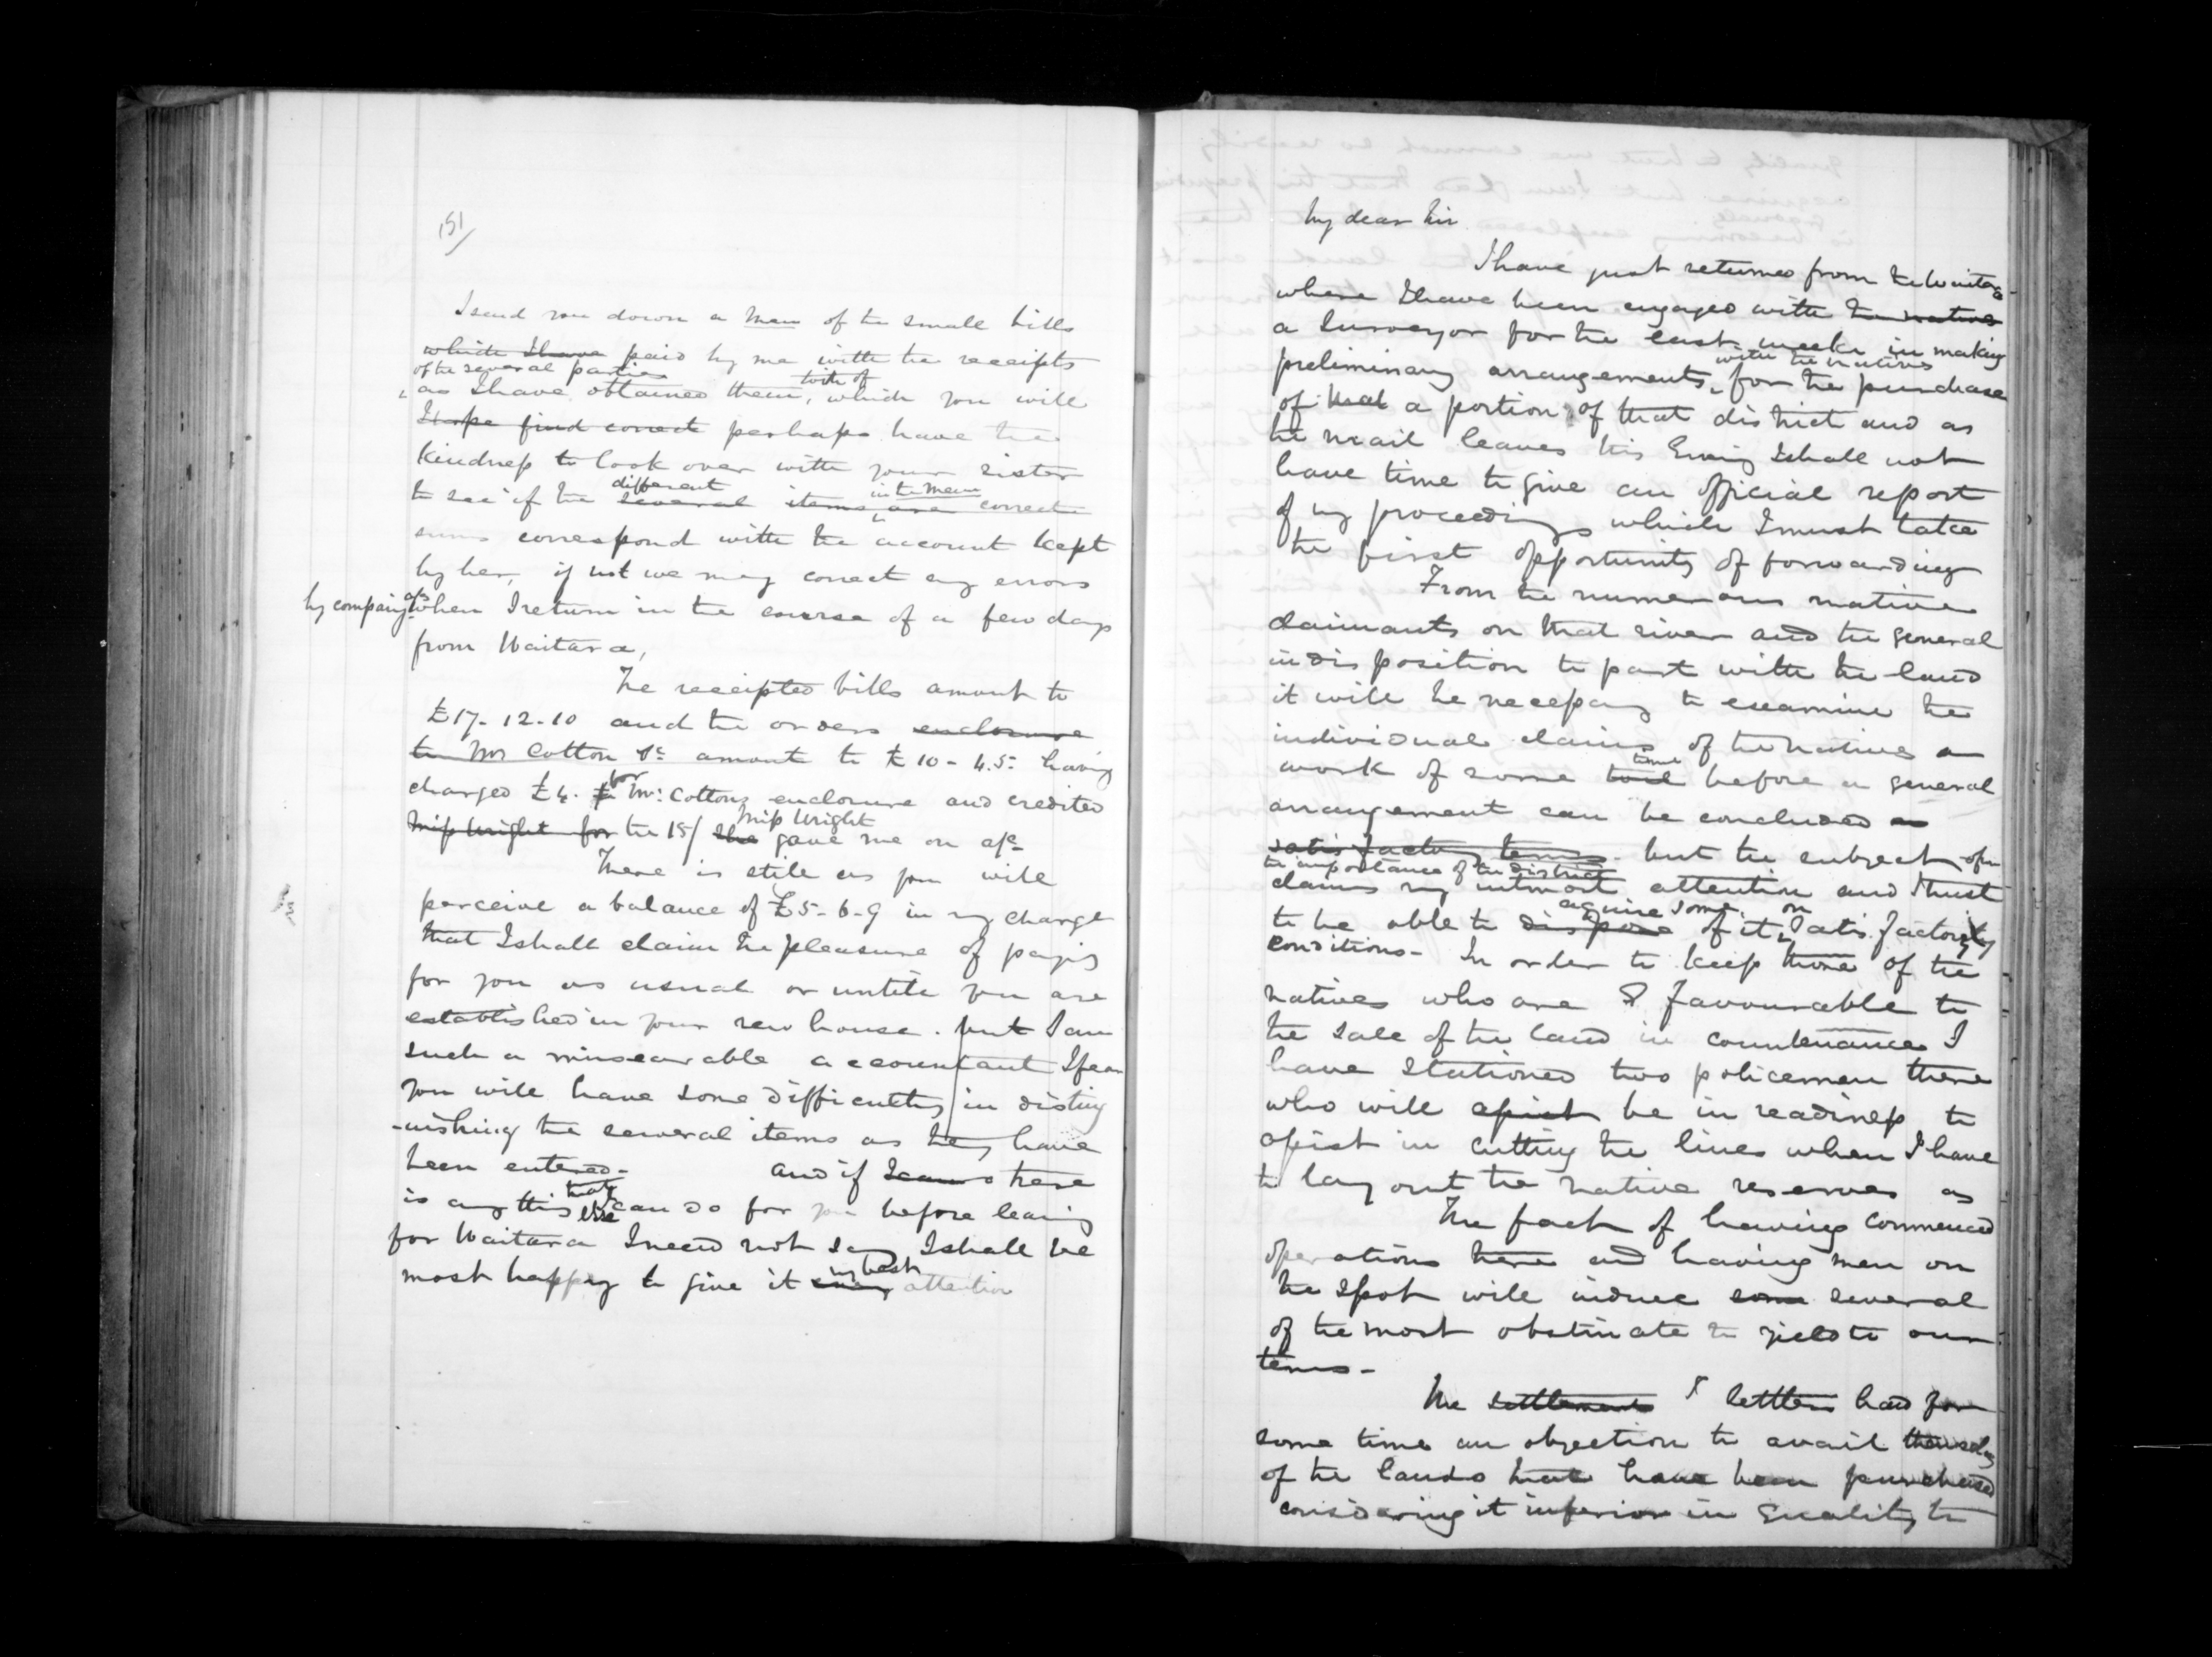 151/
I send you down a Mem of the small bills
which I have paid by me with the receipts
of the several parties
as I have obtained them, both of which you will
I hope find correct perhaps have the
kindness to look over with your sister
different in the Mem
to see if the several items are correct
sums correspond with the account kept
by her, if not we may correct any errors
by comparing a/cs when I return in the course of a few days
from Waitara,
The receipted bills amount to
£17-12-10 and the orders enclosure
to Mr Cotton &c amount to £10-4.5- having
charged £4. for Mr Cottons enclosure and credited
Miss Wright
Miss Wright for the 15/ she gave me on a/c
There is still as you will
perceive a balance of £5-6-9 in my charge
that I shall claim the pleasure of paying
for you as usual or until you are
established in your new house. but I am
such a misearable accountant I fear
you will have some difficulty in disting
-uishing the several items as they have
been entered- and if there
is any thing else that I can do for you before leaving
for Waitara I need not say I shall be
my best
most happy to give it every attention
My dear Sir
I have just returned from the Waitara
where I have been engaged with the natives
a Surveyor for the last week in making
with the natives
preliminary arrangements, for the purchase
of that a portion of that district and as
the mail leaves this Evening I shall not
have time to give an official report
of my proceedings which I must take
the first opportunity of forwarding
From the numerous native
claimants on that river and the general
indisposition to part with the land
it will be necessary to examine the
individual claims of the natives a
time
work of some before a general
arrangement can be concluded on
satisfactory terms. but the subject from
the importance of the district
claims my utmost attention and I trust
acquire some on
to be able to dispose of it satisfactory
conditions- In order to keep those of the
natives who are favourable to
the sale of the land in countenance I
have stationed two policemen there
who will assist be in readiness to
assist in cutting the lines when I have
to lay out the native reserves as
The fact of having commenced
operations here and having men on
the spot will induce some several
of the most obstinate to yield to our
terms-
The settlements settlers had for
some time an objection to avail themselves
of the lands that have been purchased
considering it inferior in quality to